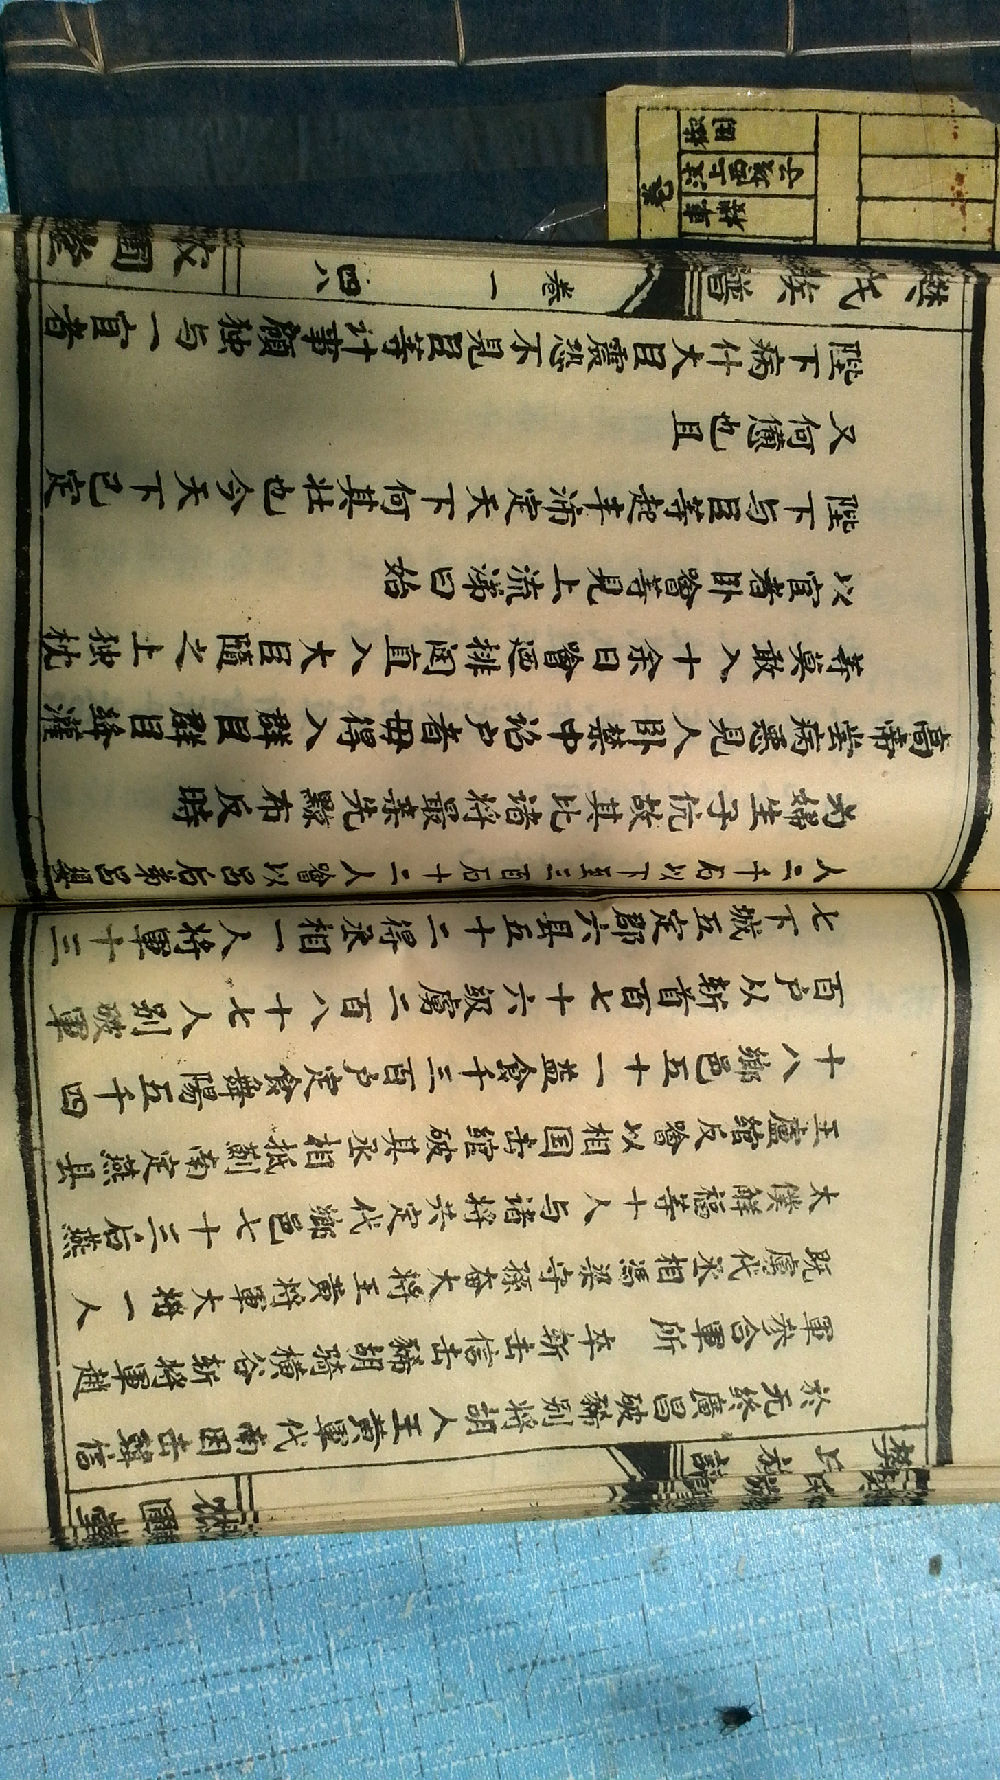 於无終廣昌破豨別將胡人王黄軍代南因击韓信
軍参合軍所卒斬击信击豨胡骑横谷斬將軍趙
既虜代丞相馮梁守孫奋大將王黄將軍大将一人
太僕解福等十人与诸將共定代鄉邑七十三后燕
王盧綰反噲以相国击綰破其丞相抵薊南定燕县
十八鄉邑五十一益食千三百户定食舞陽五千四
百户从斬首百七十六级虜二百八十七人别破軍
七下城五定郡六县五十二得丞相一人將軍十三
人二千石以下至三百石十二人噲以吕后弟吕媭
为婦生子伉故其比诸將最亲先黥布反時
高帝尝病恶見人卧禁中诏户者毋得入群臣群臣绛灌
等莫敢入十余日噲廼排闼直入大臣隨之上独枕
以宦者卧噲等見上流涕曰始
陛下与臣等起丰沛定天下何其壮也今天下已定
又何憊也且
陛下病什大臣震恐不見臣等计事顾独与一宦者
樊氏族譜
卷一
四八